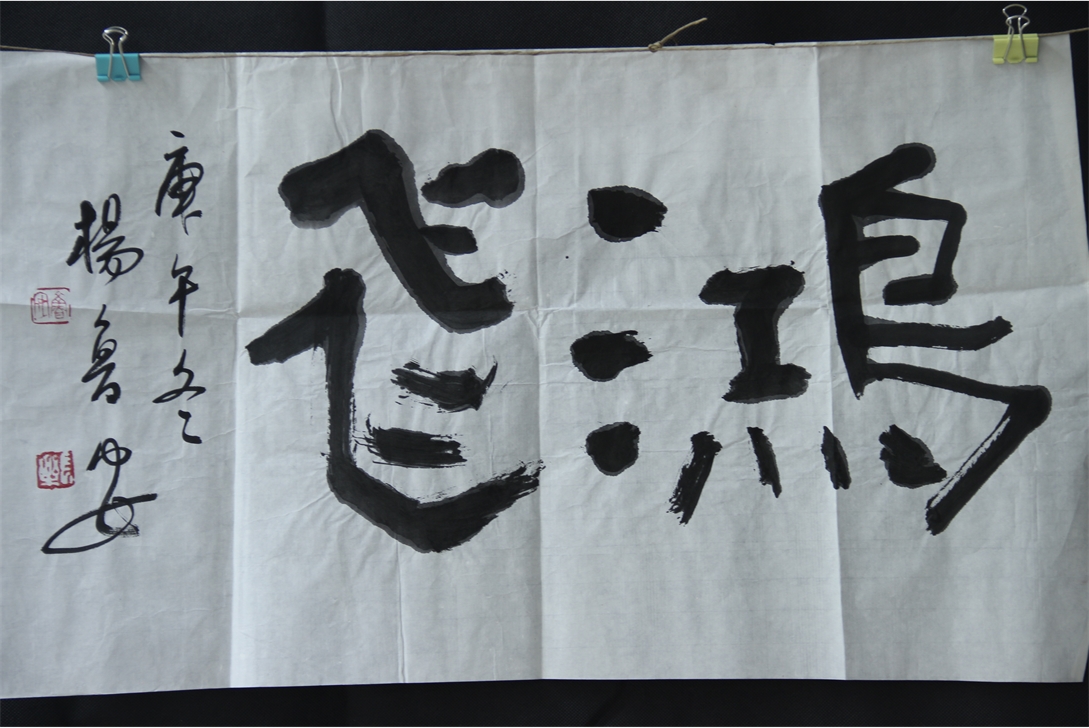 鴻飛
庚午冬
楊魯安